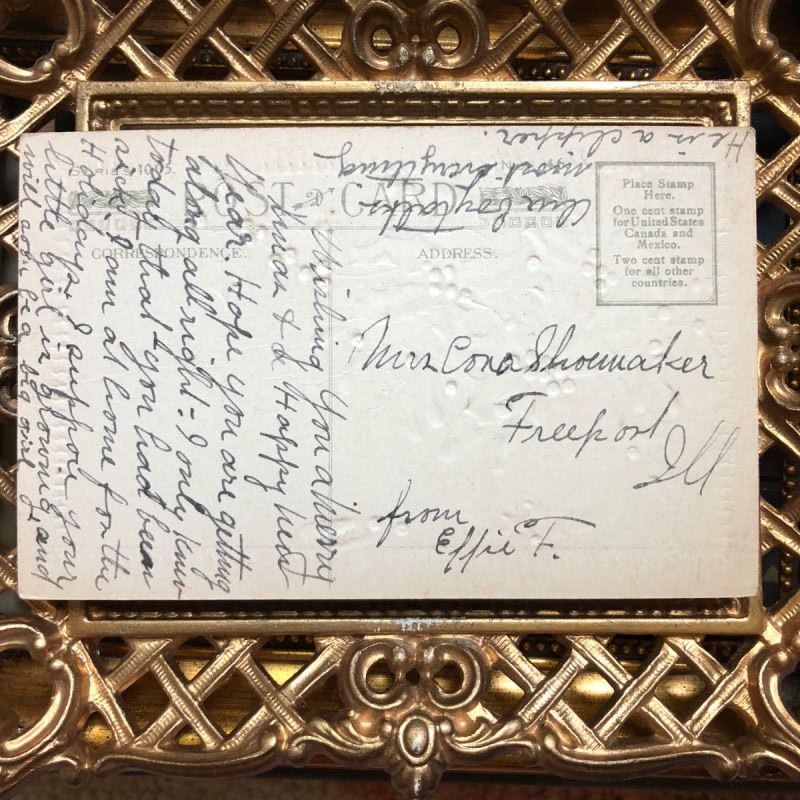 Series 1095.
POST CARD
CORRESPONDENCE.
ADDRESS.
Place Stamp
Here.
One cent stamp
for United States
Canada and
Mexico.
Two cent stamp
for all other
countries.
Wishing You a Merry
Xmas & a Happy New
Year. Hope you are getting
along all right - I only knew
today that you had been
sick. I am at home for the
Holidays. I suppose your
little girl is growing & and
will soon be a big girl.
Our boy talks
most everything
He is a clipper.
Mrs Cora Shoemaker
Freeport
Ill
from
Effie F.